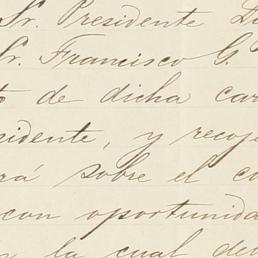 Sr. Presidente
Sr. Francisco G.
de dicha car
sidente, y recoje
rá sobre el c
con oportunida
la cual de